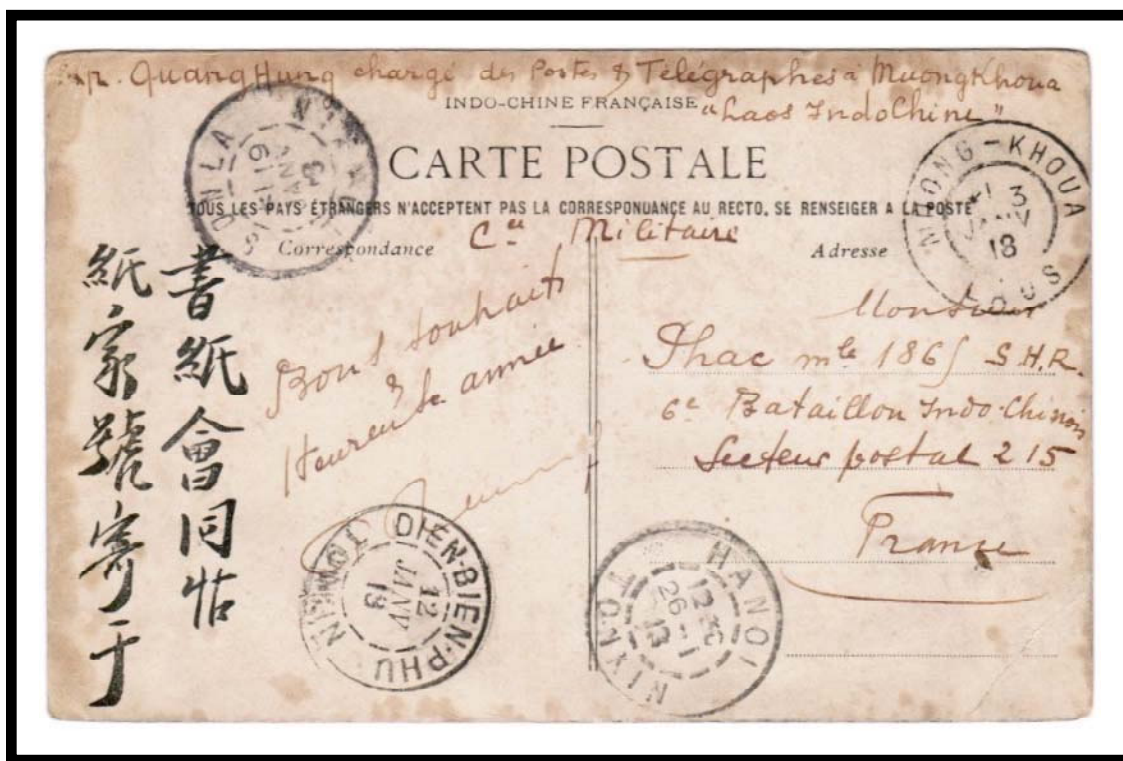 Exp. Quang Hung chargé des Postes & Télégraphes à Muong Khoua
INDO-CHINE FRANÇAISE
"Laos IndoChine"
CARTE POSTALE
TOUS LES PAYS ÉTRANGERS N'ACCEPTENT PAS LA CORRESPONDANCE AU RECTO, SE RENSEIGER A LA POSTE
Correspondance
Cce Militaire
Adresse
SONLA
TONKIN
JANV
19
MUONG-KHOUA
3
JANV
18
LAOS
書紙會同
紙家號寄于
Bons souhaits
&
Heureuse année
Monsieur
Thac mle 1865 S.H.R.
6e Bataillon Indo-Chinois
Secteur postal 215
France
DIEN-BIEN-PHU
12
JANV
19
TONKIN
HANOI
26-1
TONKIN